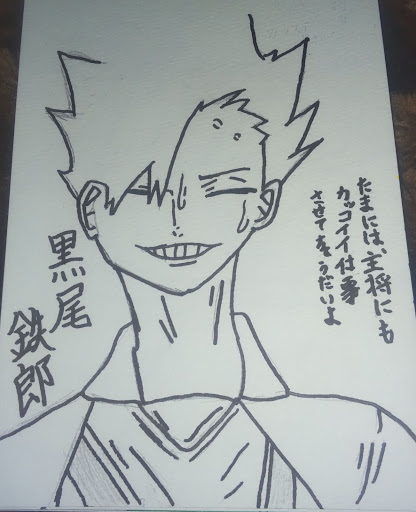 たまには、主将にも
カッコイイ仕事
させてちょうだいよ
黒尾
鉄郎